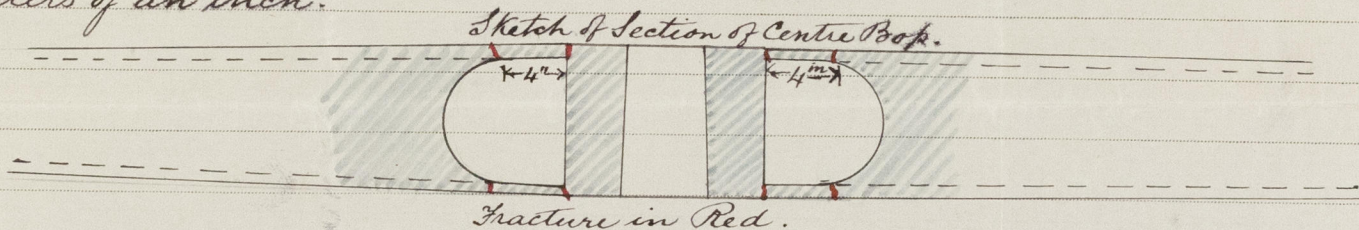 of an inch.
Sketch of Section of Centre Boss.
4" 4 in
Fracture in Red.